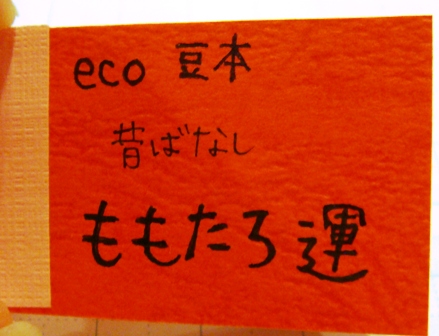 eco 豆本
昔ばなし
ももたろ運